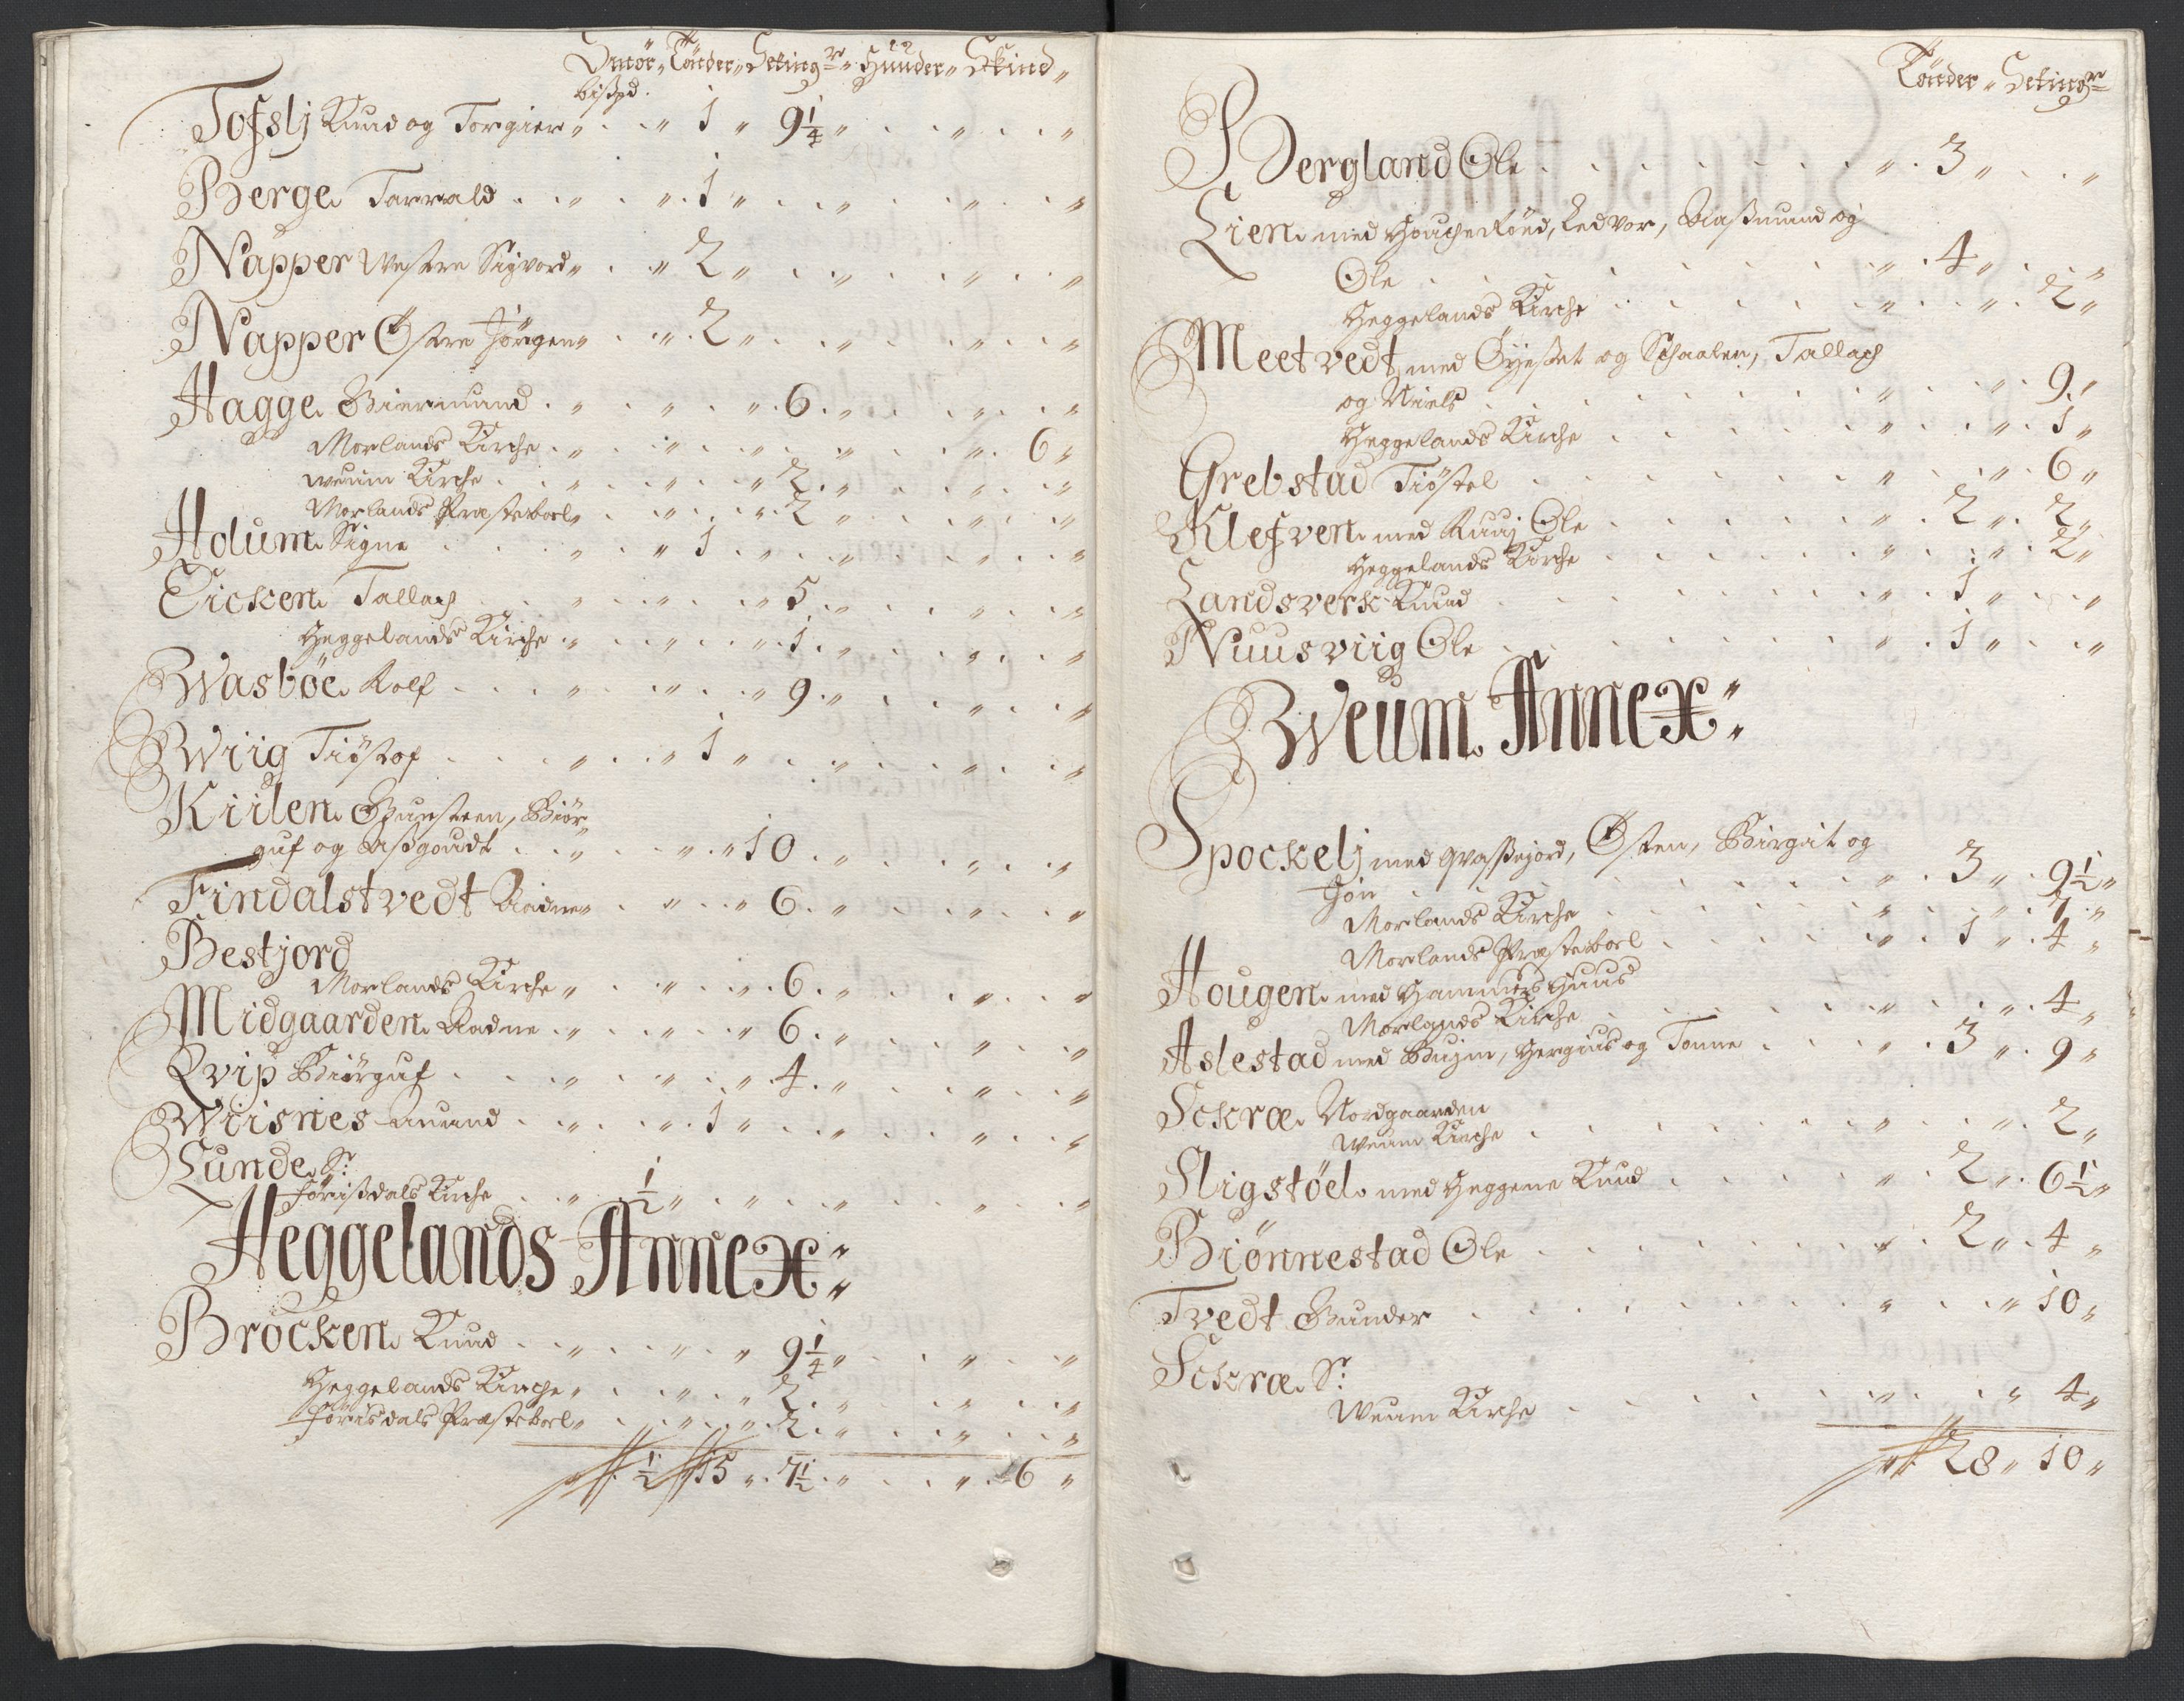 Smör „ Tönder „ Seting^r „ Huuder „ Skind „
bißpd.
Tofslj Knud og Torgier „ . . „ 1 „ 9¼ „ . . „ . . „
Berge Tarrald . . „ . „ . 1 „ . . „ . . „ . . „
Napper Westre Sigvord „ . . „ 2 „ . . „ . . „ . . „
Napper Østre Jörgen „ . . „ . 2 „ . . „ . . „ . . „
Hagge Giermund . „ . „ . „ . 6 . „ . . „ . . „
Morlands Kirche . „ . „ . . „ . . „ . . „ . 6 „
Weum Kirche . . „ . „ . „ 2 . „ . . „ . . „
Morlands Præsteboel „ . „ . „ . 2 „ . . „ . . „
Holum Signe . . . „ . „ 1 . „ . . „ . . „ . . „
Eicken Tallach . . „ . . „ . . „ 5 . „ . . „ . . „
Heggelands Kirche . „ . . „ . . „ . 1 . „ . . „ . . „
Wasböe Rolf . . . „ . . „ . . „ 9 . „ . . „ . . „
Wriig Tiøstof . . . „ . . „ 1 „ . . „ . . „ . . „
Kiilen Gunsteen, Biör„
guf og Aßgoudt . . „ . . „ . „ 10 . „ . . „ . . „
Findalstvedt Aadne „ . „ . . „ 6 . „ . . „ . . „
Bestjord
Morlands Kirche „ . „ . . „ . 6 . „ . . „ . . „
Midgaarden Aadne . „ . . „ . . „ 6 . „ . . „ . . „
Qvip Biörguf . . . „ . „ . „ . 4 . „ . . „ . . „
Wriisnes Anund . . „ . . „ . 1 „ . . „ . . „ . . „
Lunde S^r:
Jörißdals Kirche . . „ . ½ „ . „ . . „ . . „ . . „
Heggelands Annex:
Brocken Knud . . „ . . „ . „ 9¼ „ . . „ . . „
Heggelands Kirche „ . . „ . „ 2 . „ . . „ . . „
Jörisdals Præsteboel „ . . „ . „ . 2 . „ . . „ . . „
½ „ 15 „ . 7½ . „ . . „ . 6 „
Tönder „ Seting^r
Bergland Ole . . . . . . . „ . 3 „ . . „
Lien med Houchenröed, Ledvor, Aaßmund og
Ole . . . . . . . „ . 4 „ . . „
Heggelands Kirche . . . . . „ . . „ . 2 „
Meetvedt med Öyeslet og Schaalen, Tallach
og Niels . . . . . . . „ . . „ . 9 „
Heggelands Kirche . . . . . „ . . „ . 1 „
Grebstad Tiöstel . . . . . . „ . . „ . 6 „
Klefven med Ruuj Ole . . . . . „ . 2 „ . 2 „
Heggelands Kirche . . . . . „ . . „ . 2 „
Landsverk Knud . . . . . . „ . 1 „ . . „
Nuusviig Ole . . . . . . . „ . 1 „ . . „
Weum Annex:
Spockelj med Graßejord, Østen, Birgit og
Jon . . . . . . . „ . 3 „ . 9½ „
Morlands Kirche . . . . . „ . . „ . 7 . „
Morlands Præsteboel . . . . . „ . 1 „ . 4 „
Hougen med Hammers Huus
Morlands Kirche . . . . . „ . . „ . 4 „
Aslestad med Bujen, Hergius og Tonne . . . . „ . 3 „ . 9 „
Sckræ Nordgaarden
Weum Kirche . . . . . . „ . . „ . 2 „
Sligstöel med Heggene Knud . . . . „ . 2 „ . 6½ „
Biönnestad Ole . . . . . . „ . 2 „ . 4 „
Tvedt Gunder . . . . . . . „ . . „ 10 „
Sckræ S^r:
Weum Kirche . . . . . „ . . „ 4 „
28 „ 10 „